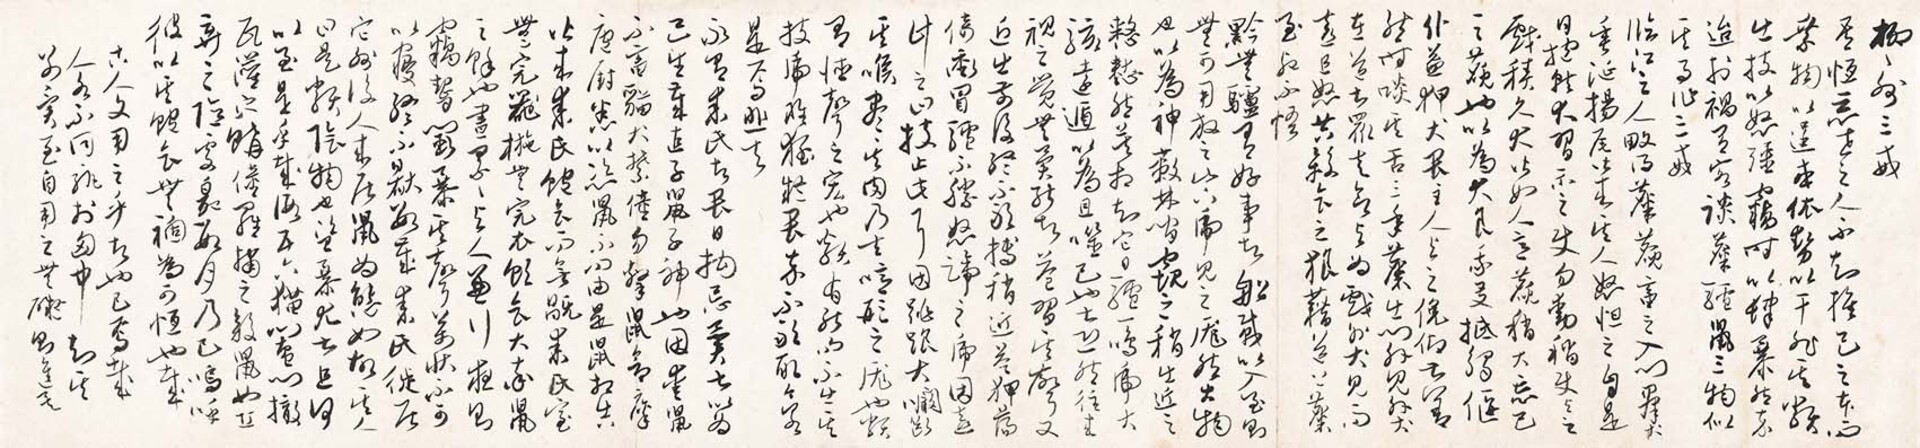 柳州三戒
吾恒惡世之人不知推己之本而
乘物以逞或依勢以干非其類
出技以怒强竊時以肆暴然卒
迨於禍有客談麋驢鼠三物似
其事作三戒
臨江之人畋得麋麑畜之入門群犬
垂涎揚尾皆來其人怒怛之自是
日抱就犬習示之使勿動稍使與之
戲積久犬皆如人意麋稍大忘己
之麋也以為犬良我友抵觸偃
仆益狎犬畏主人與之俯仰甚善
然時啖其舌三年麋出門外見外犬
在道甚眾走欲與為戲外犬見而
喜且怒共殺食之狼藉道上麋
至死不悟
黔無驢有好事者船載以入至則
無可用放之山下虎見之龐然大物
也以為神蔽林間窺之稍出近之
憖憖然莫相知他日驢一鳴虎大
駭遠遁以為且噬己也甚恐然往來
視之覺無異能者益習其聲又
近出前後終不敢搏稍近益狎蕩
倚衝冒驢不勝怒蹄之虎因喜
計之曰技止此耳因跳踉大㘎斷
其喉盡其肉乃去噫形之龐也類
有德聲之宏也類有能向不出其
技虎雖猛疑畏卒不敢取今若
是焉悲夫
永有某氏者畏日拘忌異甚以為
己生歲直子鼠子神也因愛鼠
不畜貓犬禁僮勿擊鼠倉廩
庖廚悉以恣鼠不問由是鼠相告
皆來某氏飽食而無禍某氏室
無完器椸無完衣飲食大率鼠
之餘也晝累累與人兼行夜則
竊齧鬥暴其聲萬狀不可
以寢終不厭數歲某氏徙居
他州後人來居鼠為態如故其人
曰是類陰物也盜暴尤甚且何
以至是乎哉假五六貓闔門撤
瓦灌穴購僮羅捕之殺鼠如丘
棄之隱處臭數月乃已嗚呼
彼以其飽食無禍為可恒也哉
古人文用之乎者也已焉哉
人各不同
自用之無礙